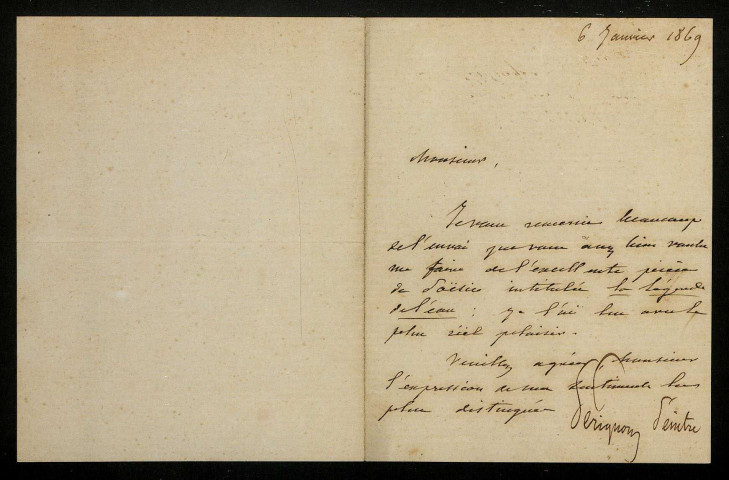 6 Janvier 1869
Monsieur,
Je vous remercie beaucoup
de l'envoi que vous avez bien voulu
me faire de l'excellente pièce
de Poësie intitulée la Légende
de l'eau : je l'ai lue avec le
plus réel plaisir.
Veuillez agréer, Monsieur
l'expression de mes sentiments les
plus distingués
Pérignon Peintre